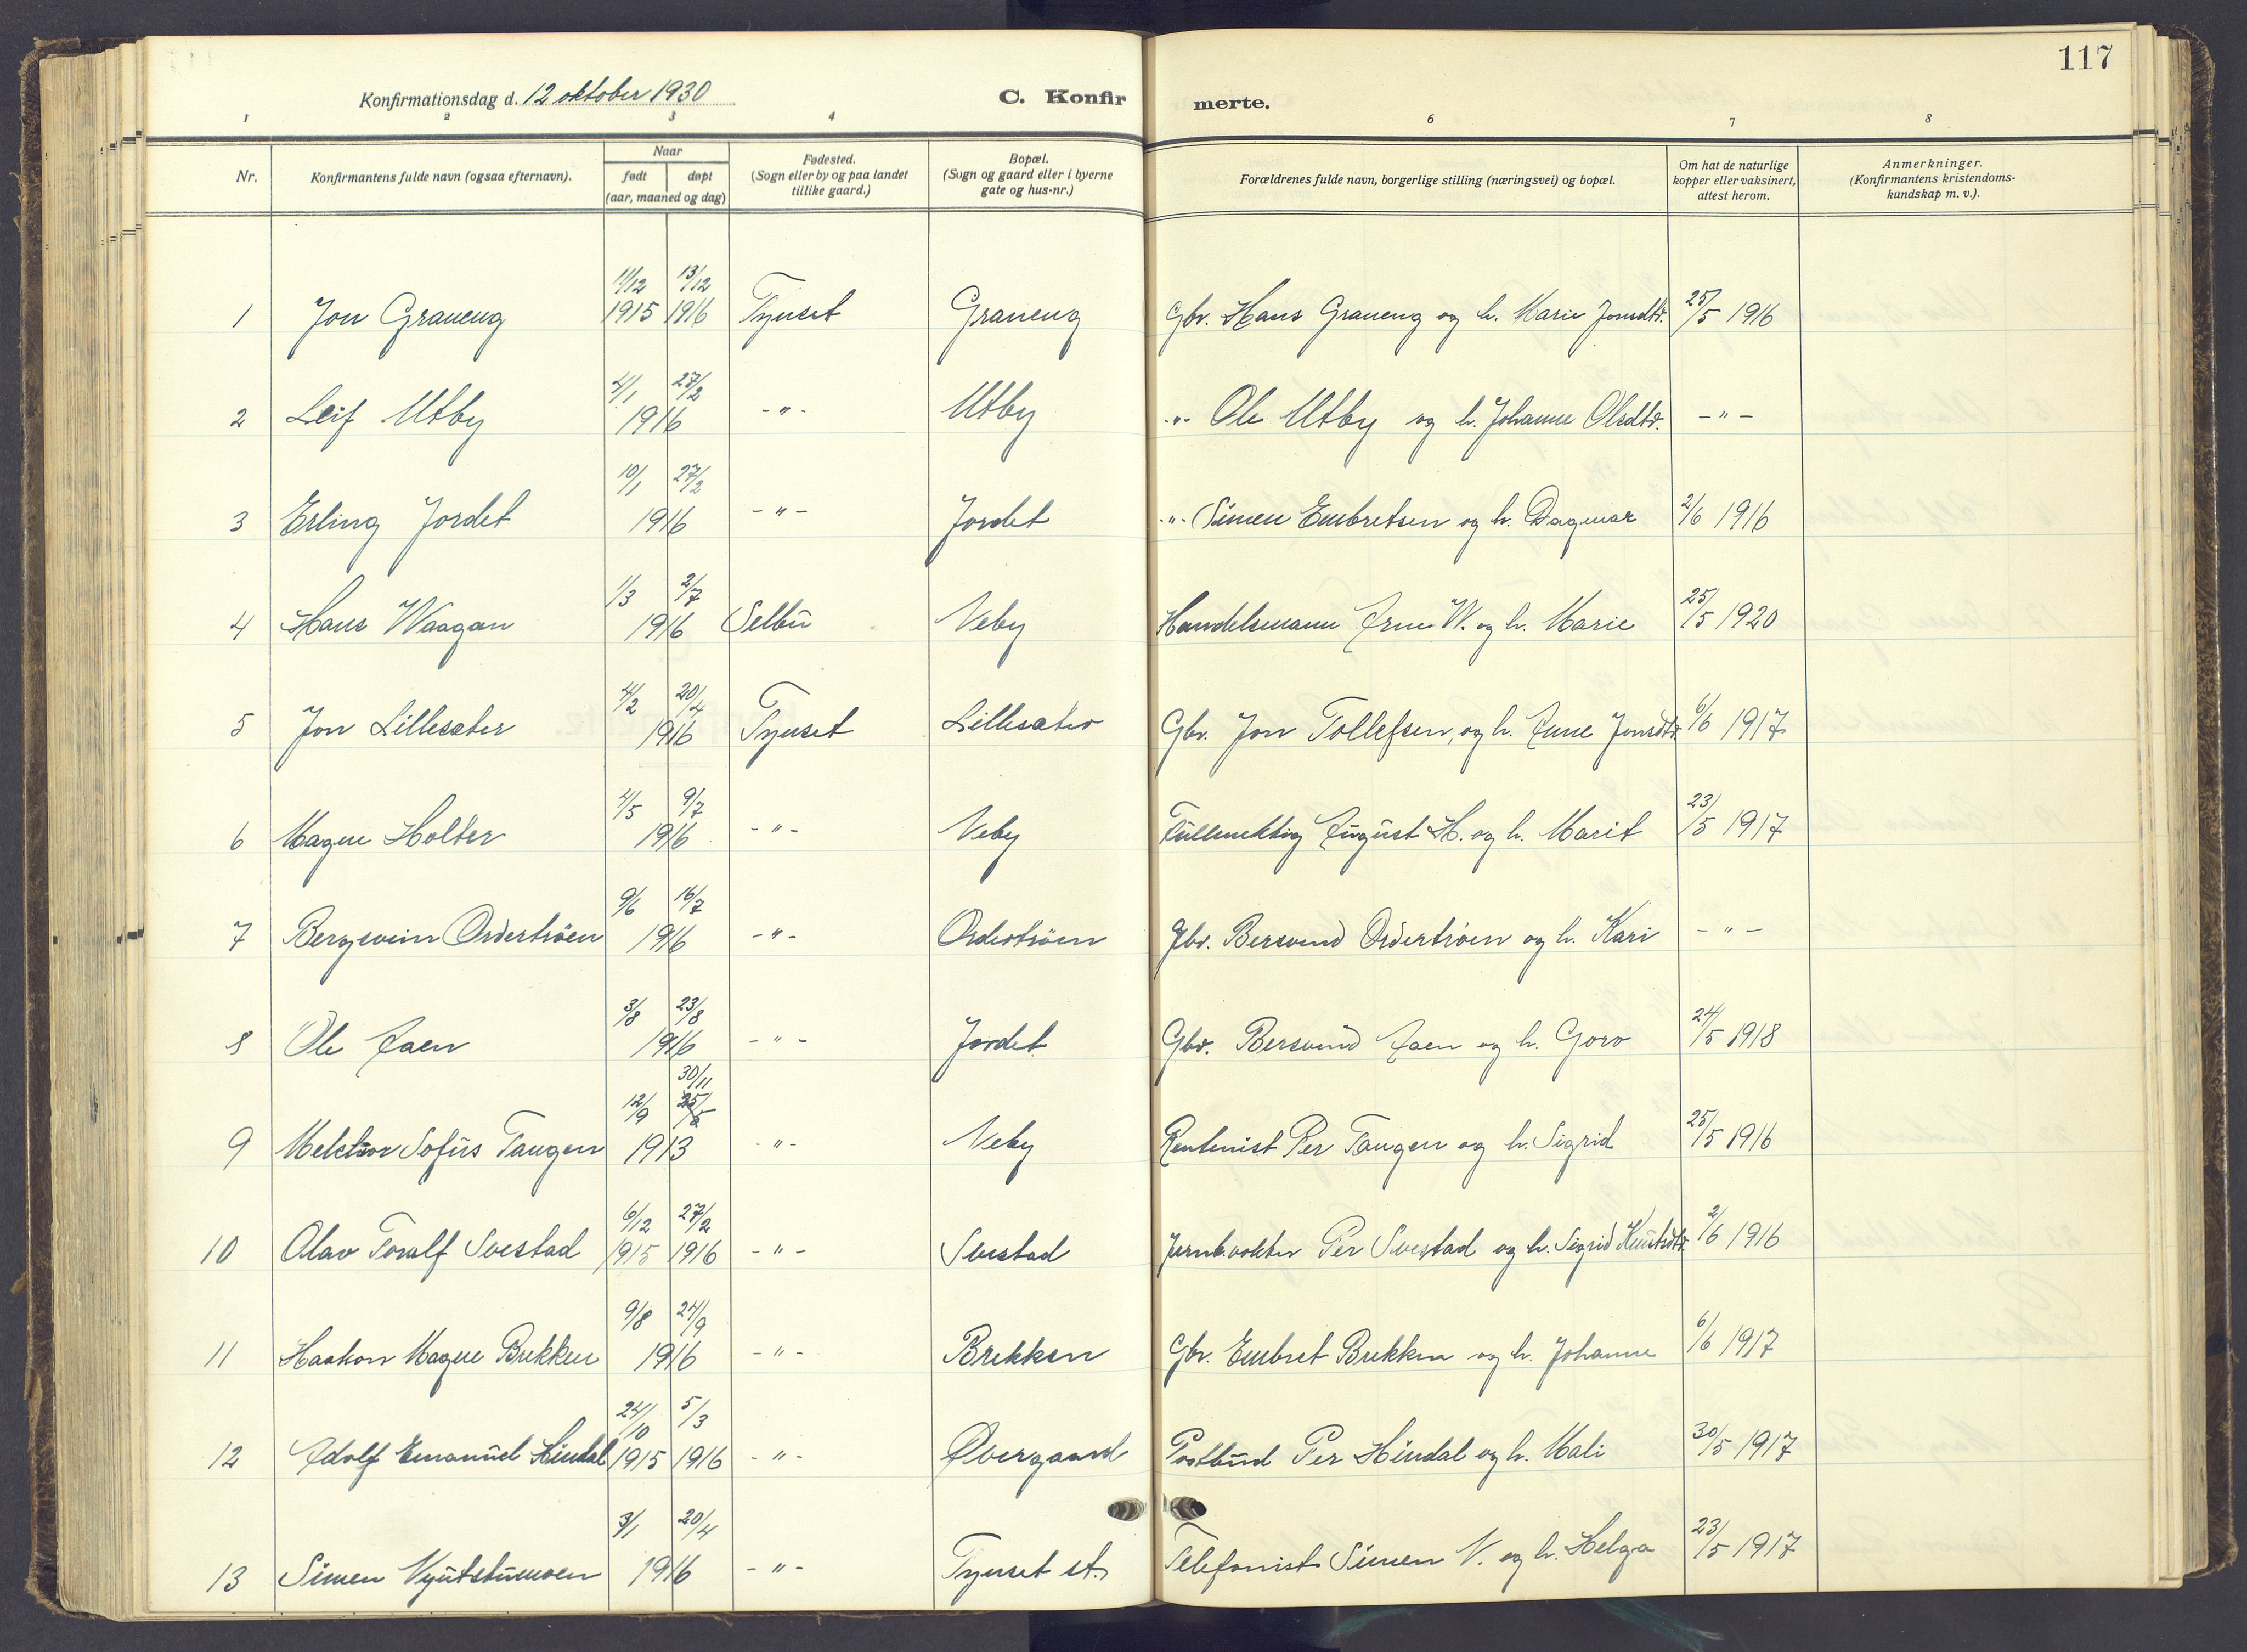 117
Konfirmationsdag d. 12 oktober 1930 C. Konfir merte.
1 2 3 4 6 7 8
Nr. Konfirmantens fulde navn (ogsaa efternavn). Naar født døpt (aar, maaned og dag) Fødested. (Sogn eller by og paa landet tillike gaard.) Bopæl. (Sogn og gaard eller i byerne gate og hus-nr.) Forældrenes fulde navn, borgerlige stilling (næringsvei) og bopæl. Om hat de naturlige kopper eller vaksinert, attest herom. Anmerkninger. (Konfirmantens kristendoms-kundskap m. v.).
1 Jon Graneng 11/12 1915 13/12 1916 Tynset Graneng Gbr. Hans Graneng og h. Marie Jonsdtr. 25/5 1916
2 Leif Utby 4/1 27/2 1916 -"- Utby -"- Ole Utby og h. Johanne Olsdtr. -"-
3 Erling Jordet 10/1 27/2 1916 -"- Jordet -"- Simen Embretsen og h. Dagmar 2/6 1916
4 Hans Waagan 1/3 2/7 1916 Selbu Neby Handelsmann Arne W. og h. Marie 25/5 1920
5 Jon Lillesæter 4/2 20/4 1916 Tynset Lillesæter Gbr. Jon Tollefsen, og h. Anne Jonsdtr. 6/6 1917
6 Magne Holter 4/5 9/7 1916 -"- Neby Fullmektig August H. og h. Marit 23/5 1917
7 Bergsvein Ordertrøen 9/6 16/7 1916 -"- Ordertrøen Gbr. Bersvend Ordertrøen og h. Kari -"-
8 Ole Aaen 3/8 23/8 1916 -"- Jordet Gbr. Bersvend Aaen og h. Goro 24/5 1918
9 Melchior Sofus Tangen 12/9 30/11 25/5 1913 -"- Neby Rentenist Per Tangen og h. Sigrid 25/5 1916
10 Olav Toralf Svestad 6/12 1915 27/2 1916 -"- Svestad Jernb.vokter Per Svestad og h. Sigrid Knutsdtr. 2/6 1916
11 Haakon Magne Brekken 9/8 24/9 1916 -"- Brekken Gbr. Embret Brekken og h. Johanne 6/6 1917
12 Adolf Emanuel Hindal 24/10 1915 5/3 1916 -"- Øvergaard Postbud Per Hindal og h. Mali 30/5 1917
13 Simen Nyutstumoen 3/1 20/4 1916 -"- Tynset st. Telefonist Simen N. og h. Helga 23/5 1917